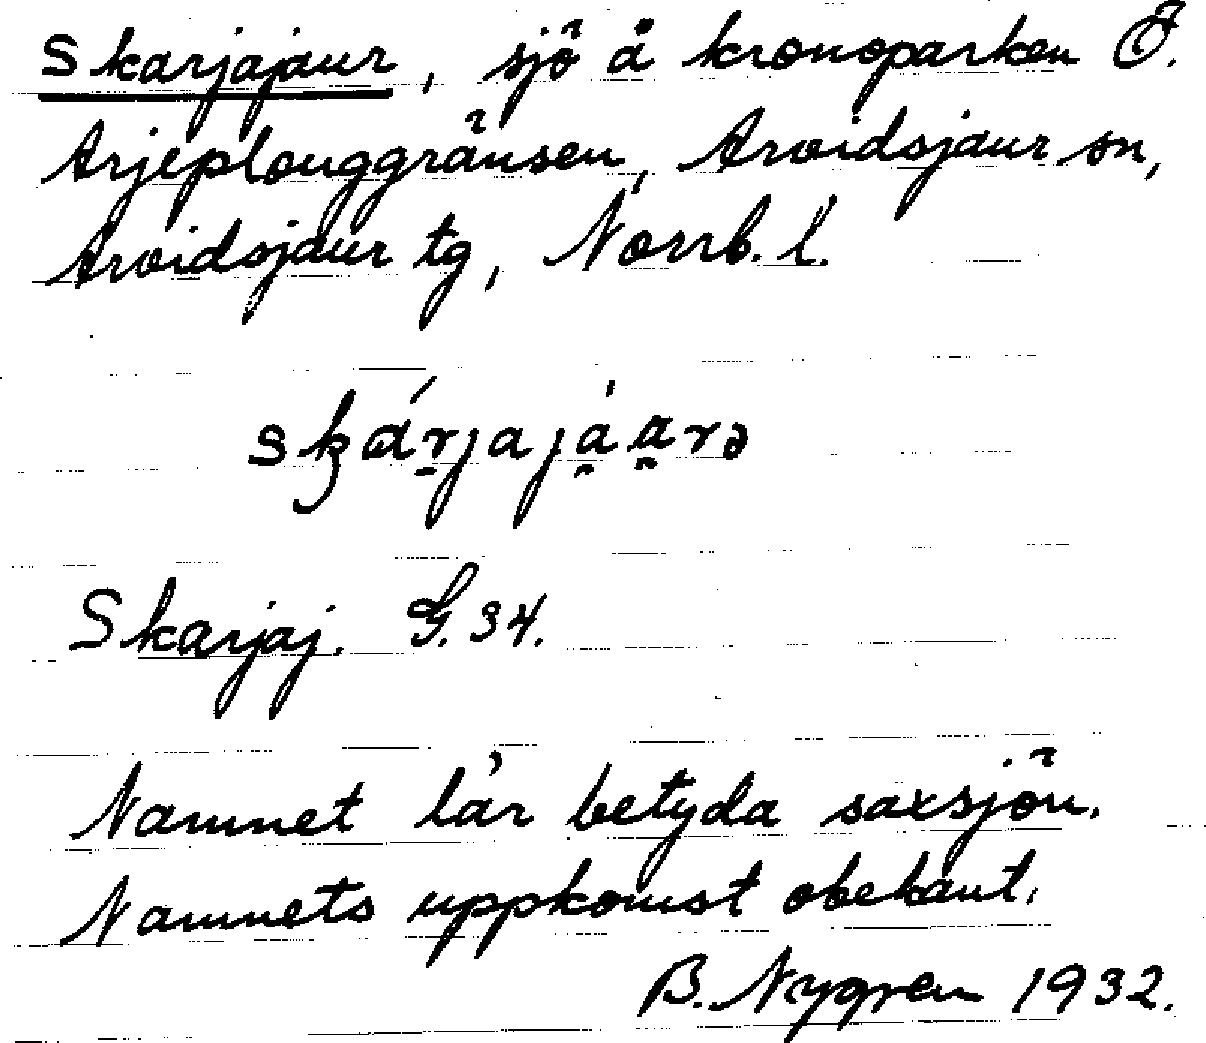 Skarjajaur, sjö å kronoparken Ö.
Arjeplouggränsen, Arvidsjaur sn,
Arvidsjaur tg, Norrb. l.
skárjajaarə
Skarjaj. G. 34.
Namnet lär betyda saxsjön.
Namnets uppkomst obekant.
B. Nygren 1932.